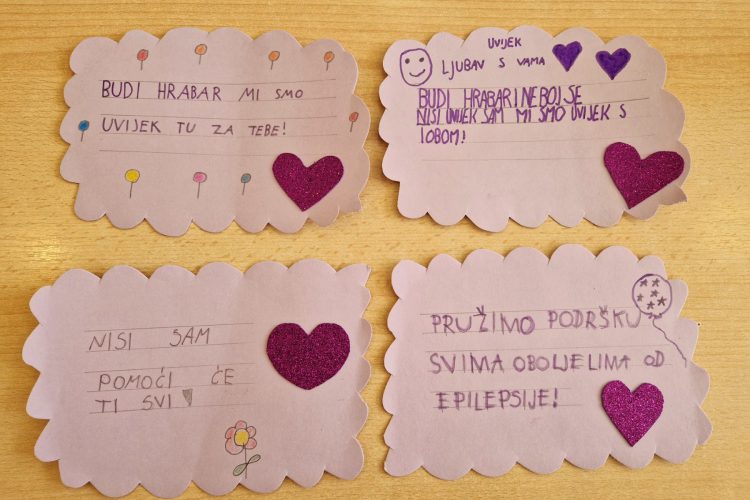 BUDI HRABAR MI SMO
UVIJEK TU ZA TEBE!
UVIJEK
LJUBAV S VAMA
BUDI HRABAR I NE BOJ SE
NISI UVIJEK SAM MI SMO UVIJEK S
TOBOM!
NISI SAM
POMOĆI ĆE
TI SVI
PRUŽIMO PODRŠKU
SVIMA OBOLJELIMA OD
EPILEPSIJE!